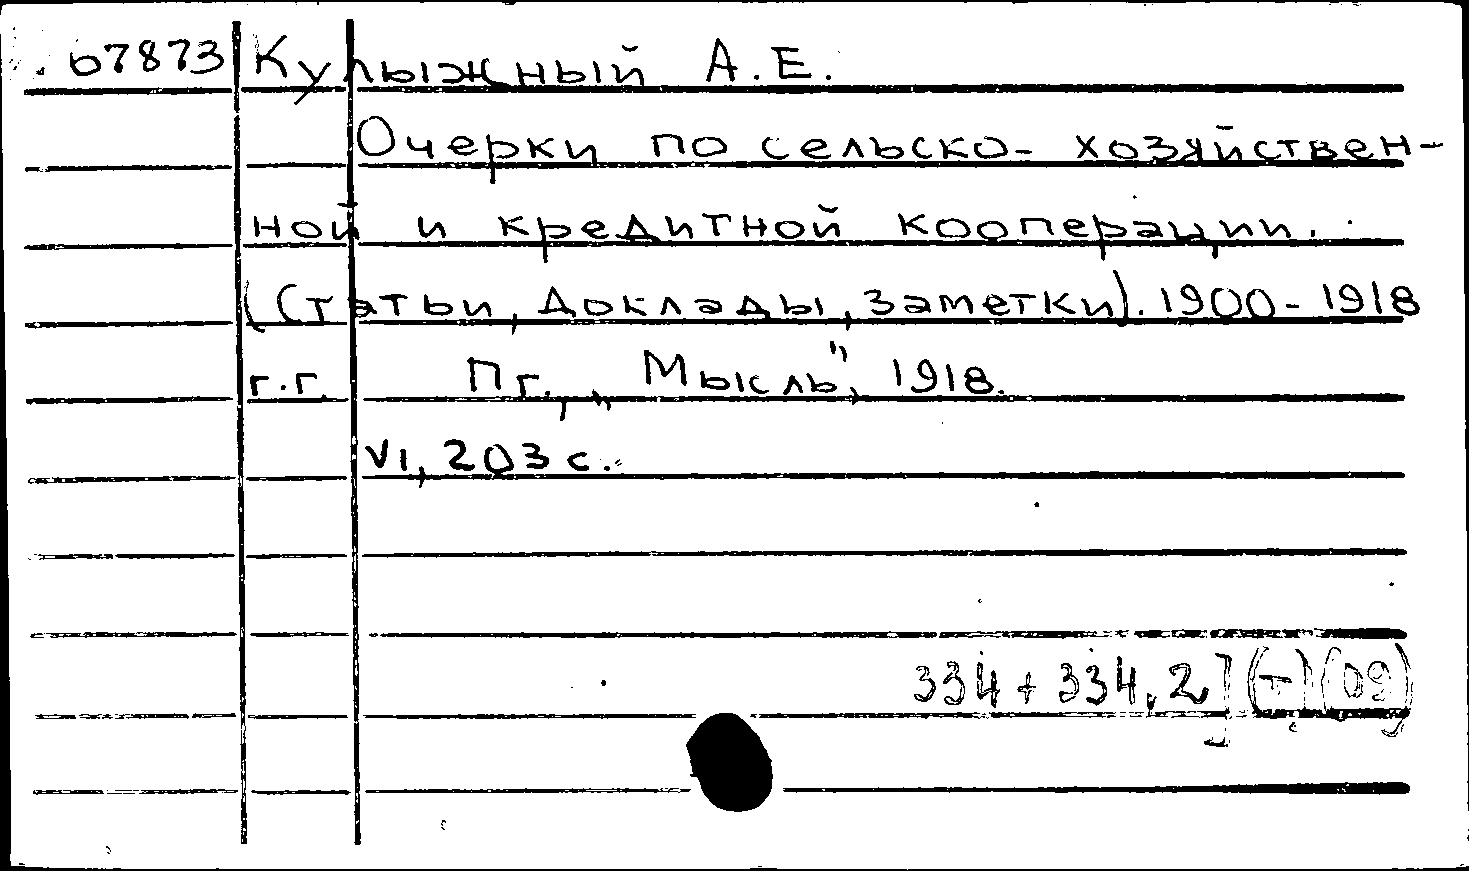 67873 Кулыжный А.Е.
Очерки по сельско-хозяйствен-
ной и кредитной кооперации.
(Статьи, доклады, заметки). 1900-1918
г.г. Пг., „Мысль", 1918.
VI, 203 с.
334 + 334.2] (-) (09)